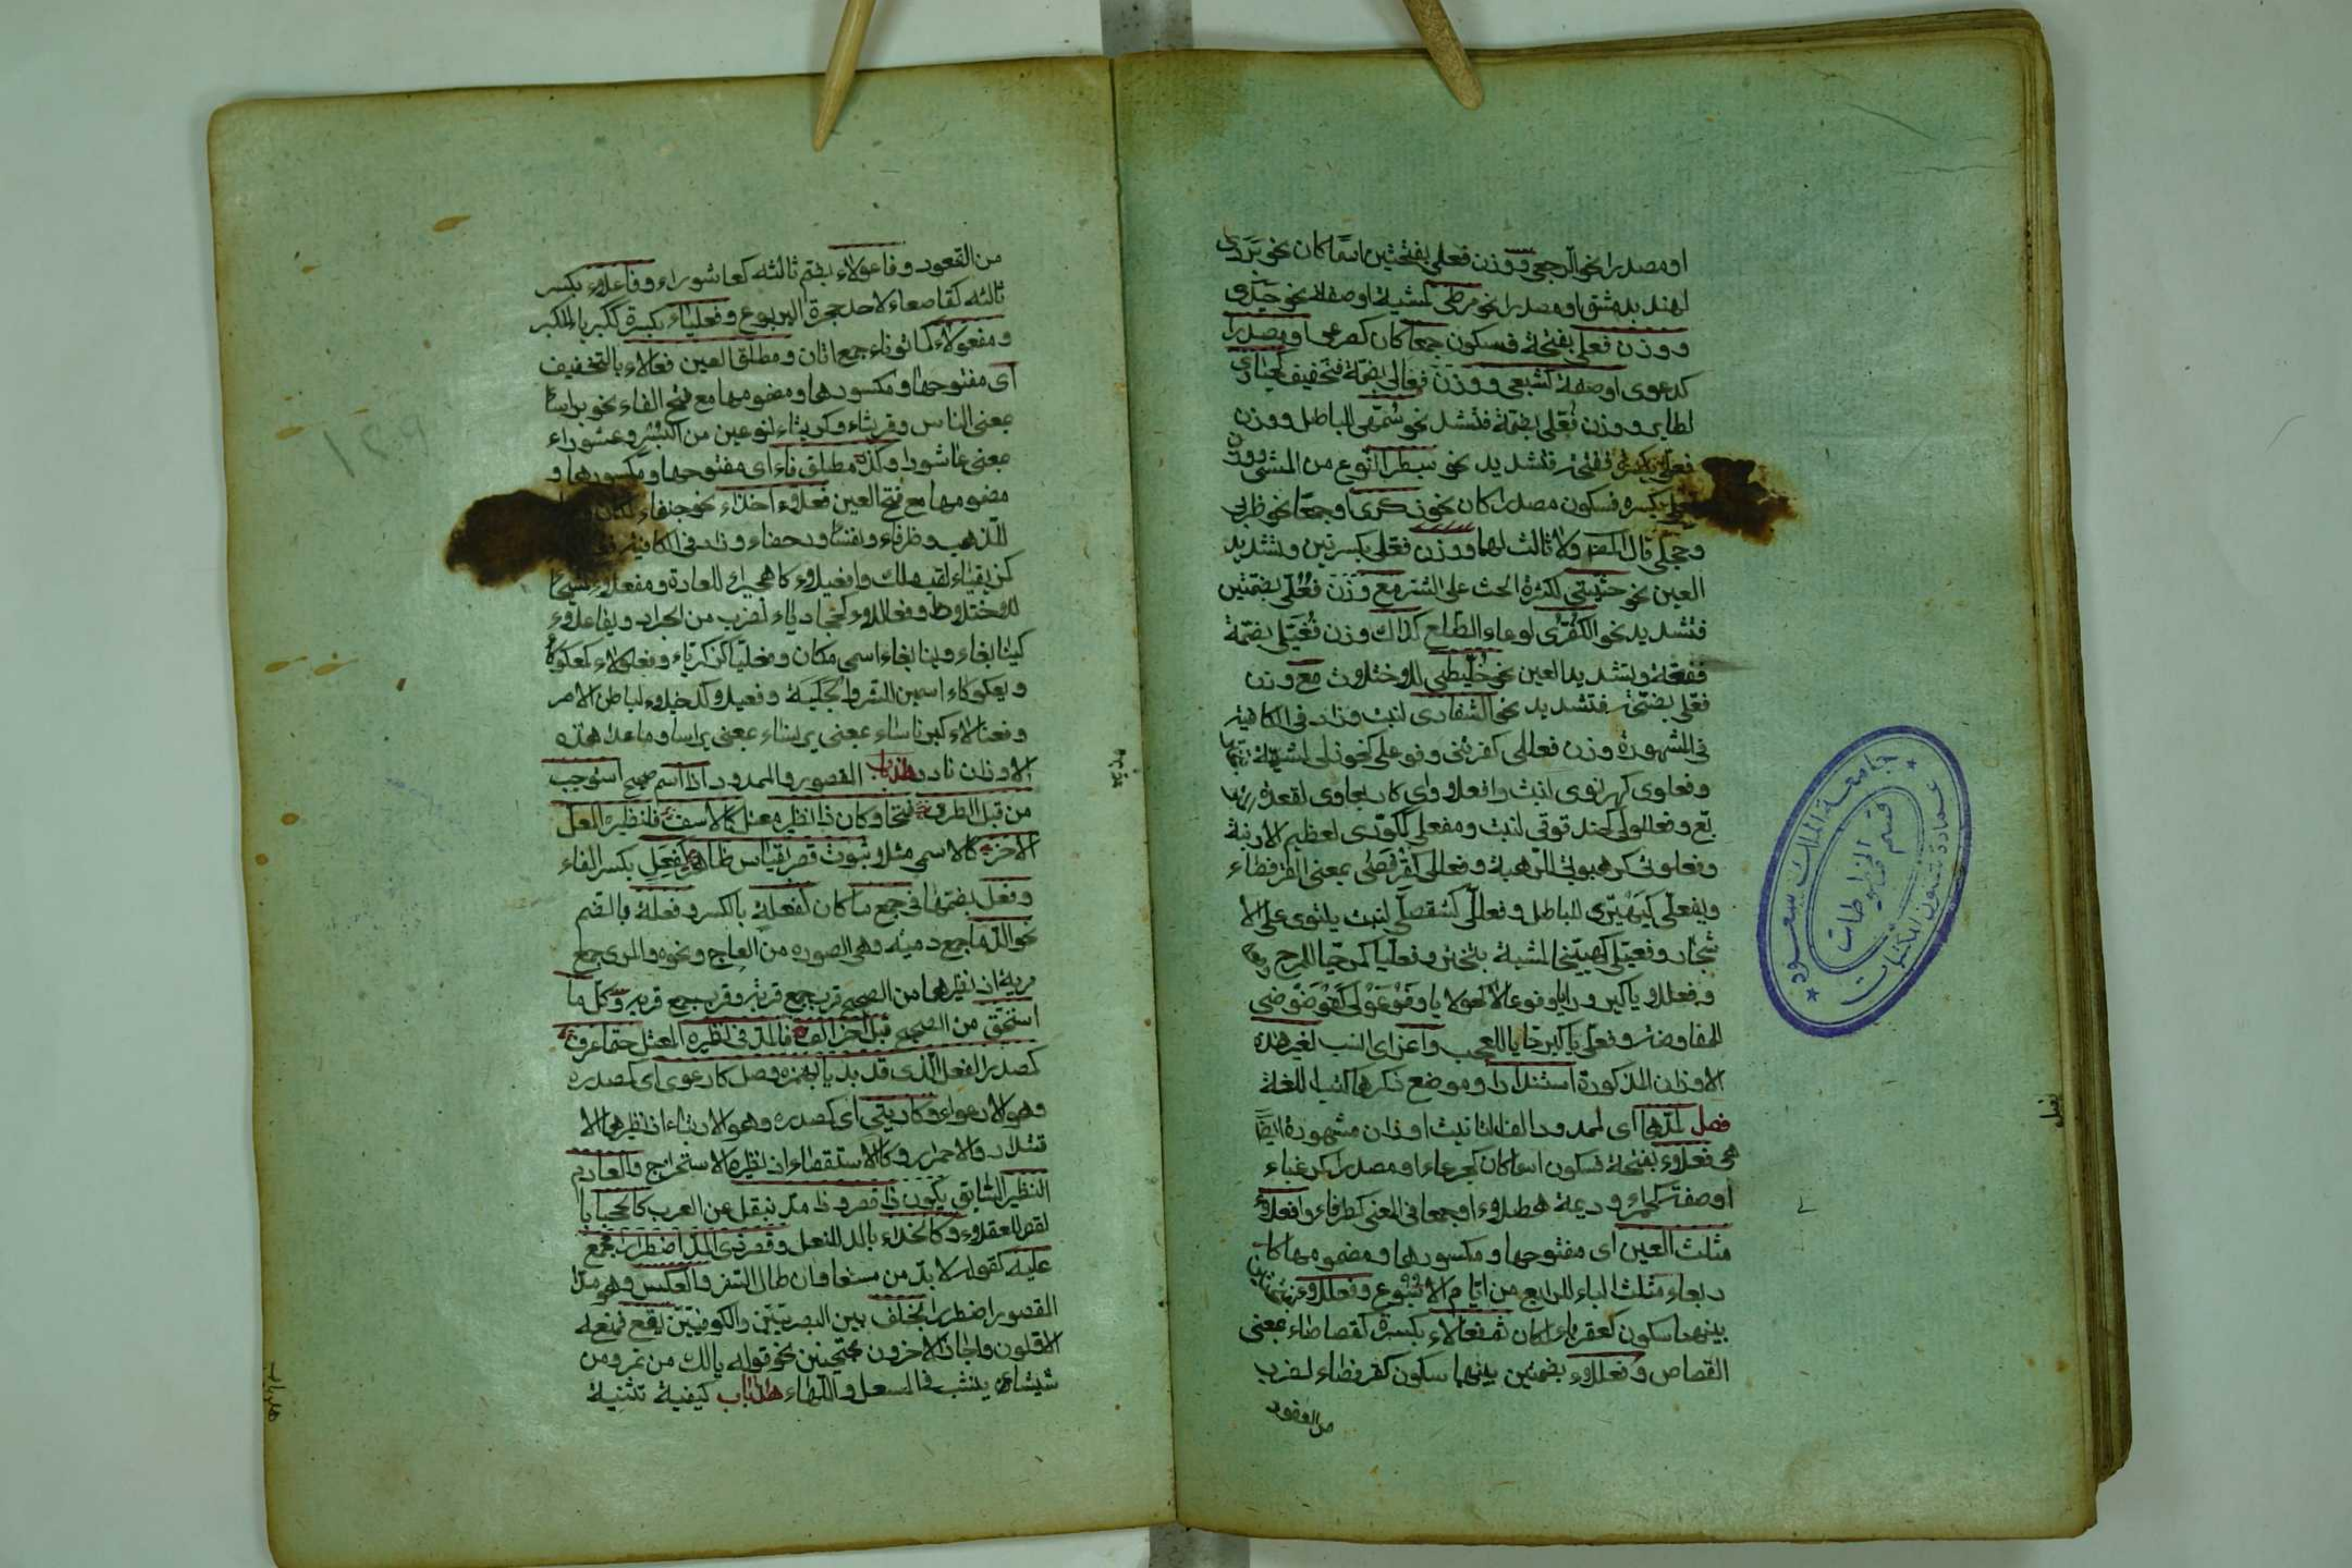 او مصدرا نحو الرجعى ووزن فعلى بفتحتين اسما كان نحو بردى
لنهر بدمشق او مصدرا نحو مرطى لمشية او صفة نحو حيدى
ووزن فعلى بفتحة فسكون جمعا كان كصرعى او مصدرا
كدعوى او صفة كشبعى ووزن فعالى بضمة فتخفيف كحبارى
لطاير ووزن فعلى بضمة فتشد نحو سمهى للباطل ووزن
فعلى بكسرة ففتحة فتشديد نحو سبطرا لنوع من المشى ووزن
فعلى بكسرة فسكون مصدرا كان نحو ذكرى او جمعا نحو ظربى
وحجلى قال المصنف ولا ثالث لهما ووزن فعلى بكسرتين وتشديد
العين نحو حثيثى لكثرة الحث على الشئ مع وزن فعلى بضمتين
فتشديد نحو الكفرى لوعاء الطلع كذاك وزن فعيلى بضمة
ففتحة وتشديد العين نحو خليطى للاختلاط مع وزن
فعالى بضمة فتشديد نحو الشقارى لنبت وزاد فى الكافية
فى المشهورة وزن فعللى كفرتنى وفوعلى كخوزلى لمشية
وفعلوى كهرنوى لنبت وافعلاوى كاربعاوى لقعدة
وفعللولى كحندقوقى لنبت ومفعلى كمكورى لعظيم الارنبة
وفعلوتى كرهبوتى للرهبة وفعللى كقرفصى بمعنى القرفصاء
ويفعلى كيهيرى للباطل وفعللى كشفصلى لنبت يلتوى على الا
شجار وفعيلى كهبيخى لمشية بتبختر وفعليا كمرحيا للمرح
وفعللايا كبردرايا وفوعالا كحولايا وفوعولى كفوضوضى
للمفاوضة وفعلايا كبرحايا للعجب واعز اى انسب لغير هذه
الاوزان المذكورة استندارا وموضع ذكرها كتب اللغة
فصل لمدها اى لممدود الف التانيث اوزان مشهورة ايضا
هى فعلاء بفتحة فسكون اسما كان كجرعاء او مصدرا كرغباء
او صفة كحمراء وديمة هطلاء او جمعا فى المعنى كطرفاء وافعلاء
مثلث العين اى مفتوحها ومكسورها ومضمومها كا
ربعاء مثلث الباء للرابع من ايام الاسبوع وفعللاء
بينهما سكون كعقرباء لمكان ثم فعالاء بكسرة كقصاصاء بمعنى
القصاص وفعللاء بضمتين بينهما سكون كقرفصاء لضرب
من القعود
من القعود وفاعولاء بضم ثالثه كعاشوراء وفاعلاء بكسر
ثالثه كقاصعاء لاحد حجرة اليربوع وفعلياء بكسرة ككبرياء للكبر
ومفعولاء كماتوناء جمع اتان ومطلق العين فعالاء بالتخفيف
اى مفتوحها ومكسورها ومضمومها مع فتح الفاء نحو براساء
بمعنى الناس وقريثاء وكريثاء لنوعين من البسر وعشوراء
بمعنى عاشورا وكذا مطلق فاء اى مفتوحها ومكسورها و
مضمومها مع فتح العين فعلاء اخذاء نحو جنفاء لمكان
للذهب وظرفاء ونفساء ورحضاء وزاد فى الكافية
كزيقياء لقب ملك وافعيلاء كاهجيراء للعادة ومفعلاء
للاختلاط وفعاللاء كجخادباء لضرب من الجراد ويفاعلاء
كينابعاء وينابعاء اسمى مكان وفعليا كزكرياء وفعلولاء كمعكوكاء
وبعكوكاء اسمين للشر والجلبة وفعيلاء كدخيلاء لباطن الامر
وفعنالاء كبرناساء بمعنى برنساء بمعنى براسا وما عدا هذه
الاوزان نادر هذا باب المقصور والممدود اذا اسم صح استوجب
من قبل الطرف فتحا وكان ذا نظير معتل كالاسف فلنظيره المعل
الاخر كالاسى مثلا ثبوت قصر بقياس ظاهر كفعل بكسر الفاء
وفعل بضمها فى جمع ما كان كفعلة بالكسر وفعلة بالضم
نحو الدما جمع دمية وهى الصورة من العاج ونحوه والمرى جمع
مرية اذ نظيرهما من الصحيح قرب جمع قربة وقرب جمع قربة وكل ما
استحق من الصحيح قبل اخر الف فالمد فى نظيره المعتل حتما عرف
كمصدر الفعل الذى قد بديا بهمز وصل كارعوى اى كمصدره
وهو الارعواء وكارتاى اى كمصدره وهو الارتياء اذ نظيرهما الا
قتدار والاحمرار وكالاستقصاء اذ نظيره الاستخراج والعادم
النظير السابق يكون ذا قصر وذا مد بنقل عن العرب كالحجى با
لقصر للعقل وكالحذاء بالمد للنعل وقصر ذى المد اضطرارا مجمع
عليه كقوله لا بد من صنعا وان طال السفر والعكس وهو مد
المقصور اضطرارا بخلف بين البصريين والكوفيين يقع فمنعه
الاقلون واجازه الاخرون محتجين بنحو قوله يا لك من تمر ومن
شيشاء ينشب فى المسعل واللهاء هذا باب كيفية تثنية
جامعة الملك سعود
عمادة شؤون المكتبات
قسم المخطوطات